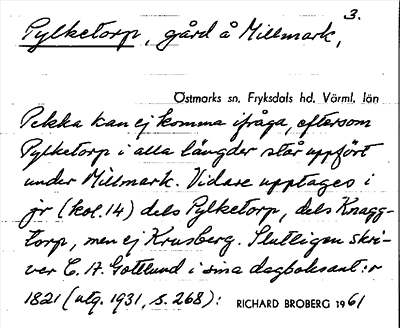 3.
Pylketorp, gård å Millmark,
Östmarks sn. Fryksdals hd. Värml. län
Pekka kan ej komma ifråga, eftersom
Pylketorp i alla längder står uppfört
under Millmark. Vidare upptages i
jr (kol. 14) dels Pylketorp, dels Knagg-
torp, men ej Krusberg. Slutligen skri-
ver C. A. Gottlund i sina dagboksant:r
1821 (utg. 1931, s. 268):
RICHARD BROBERG 1961